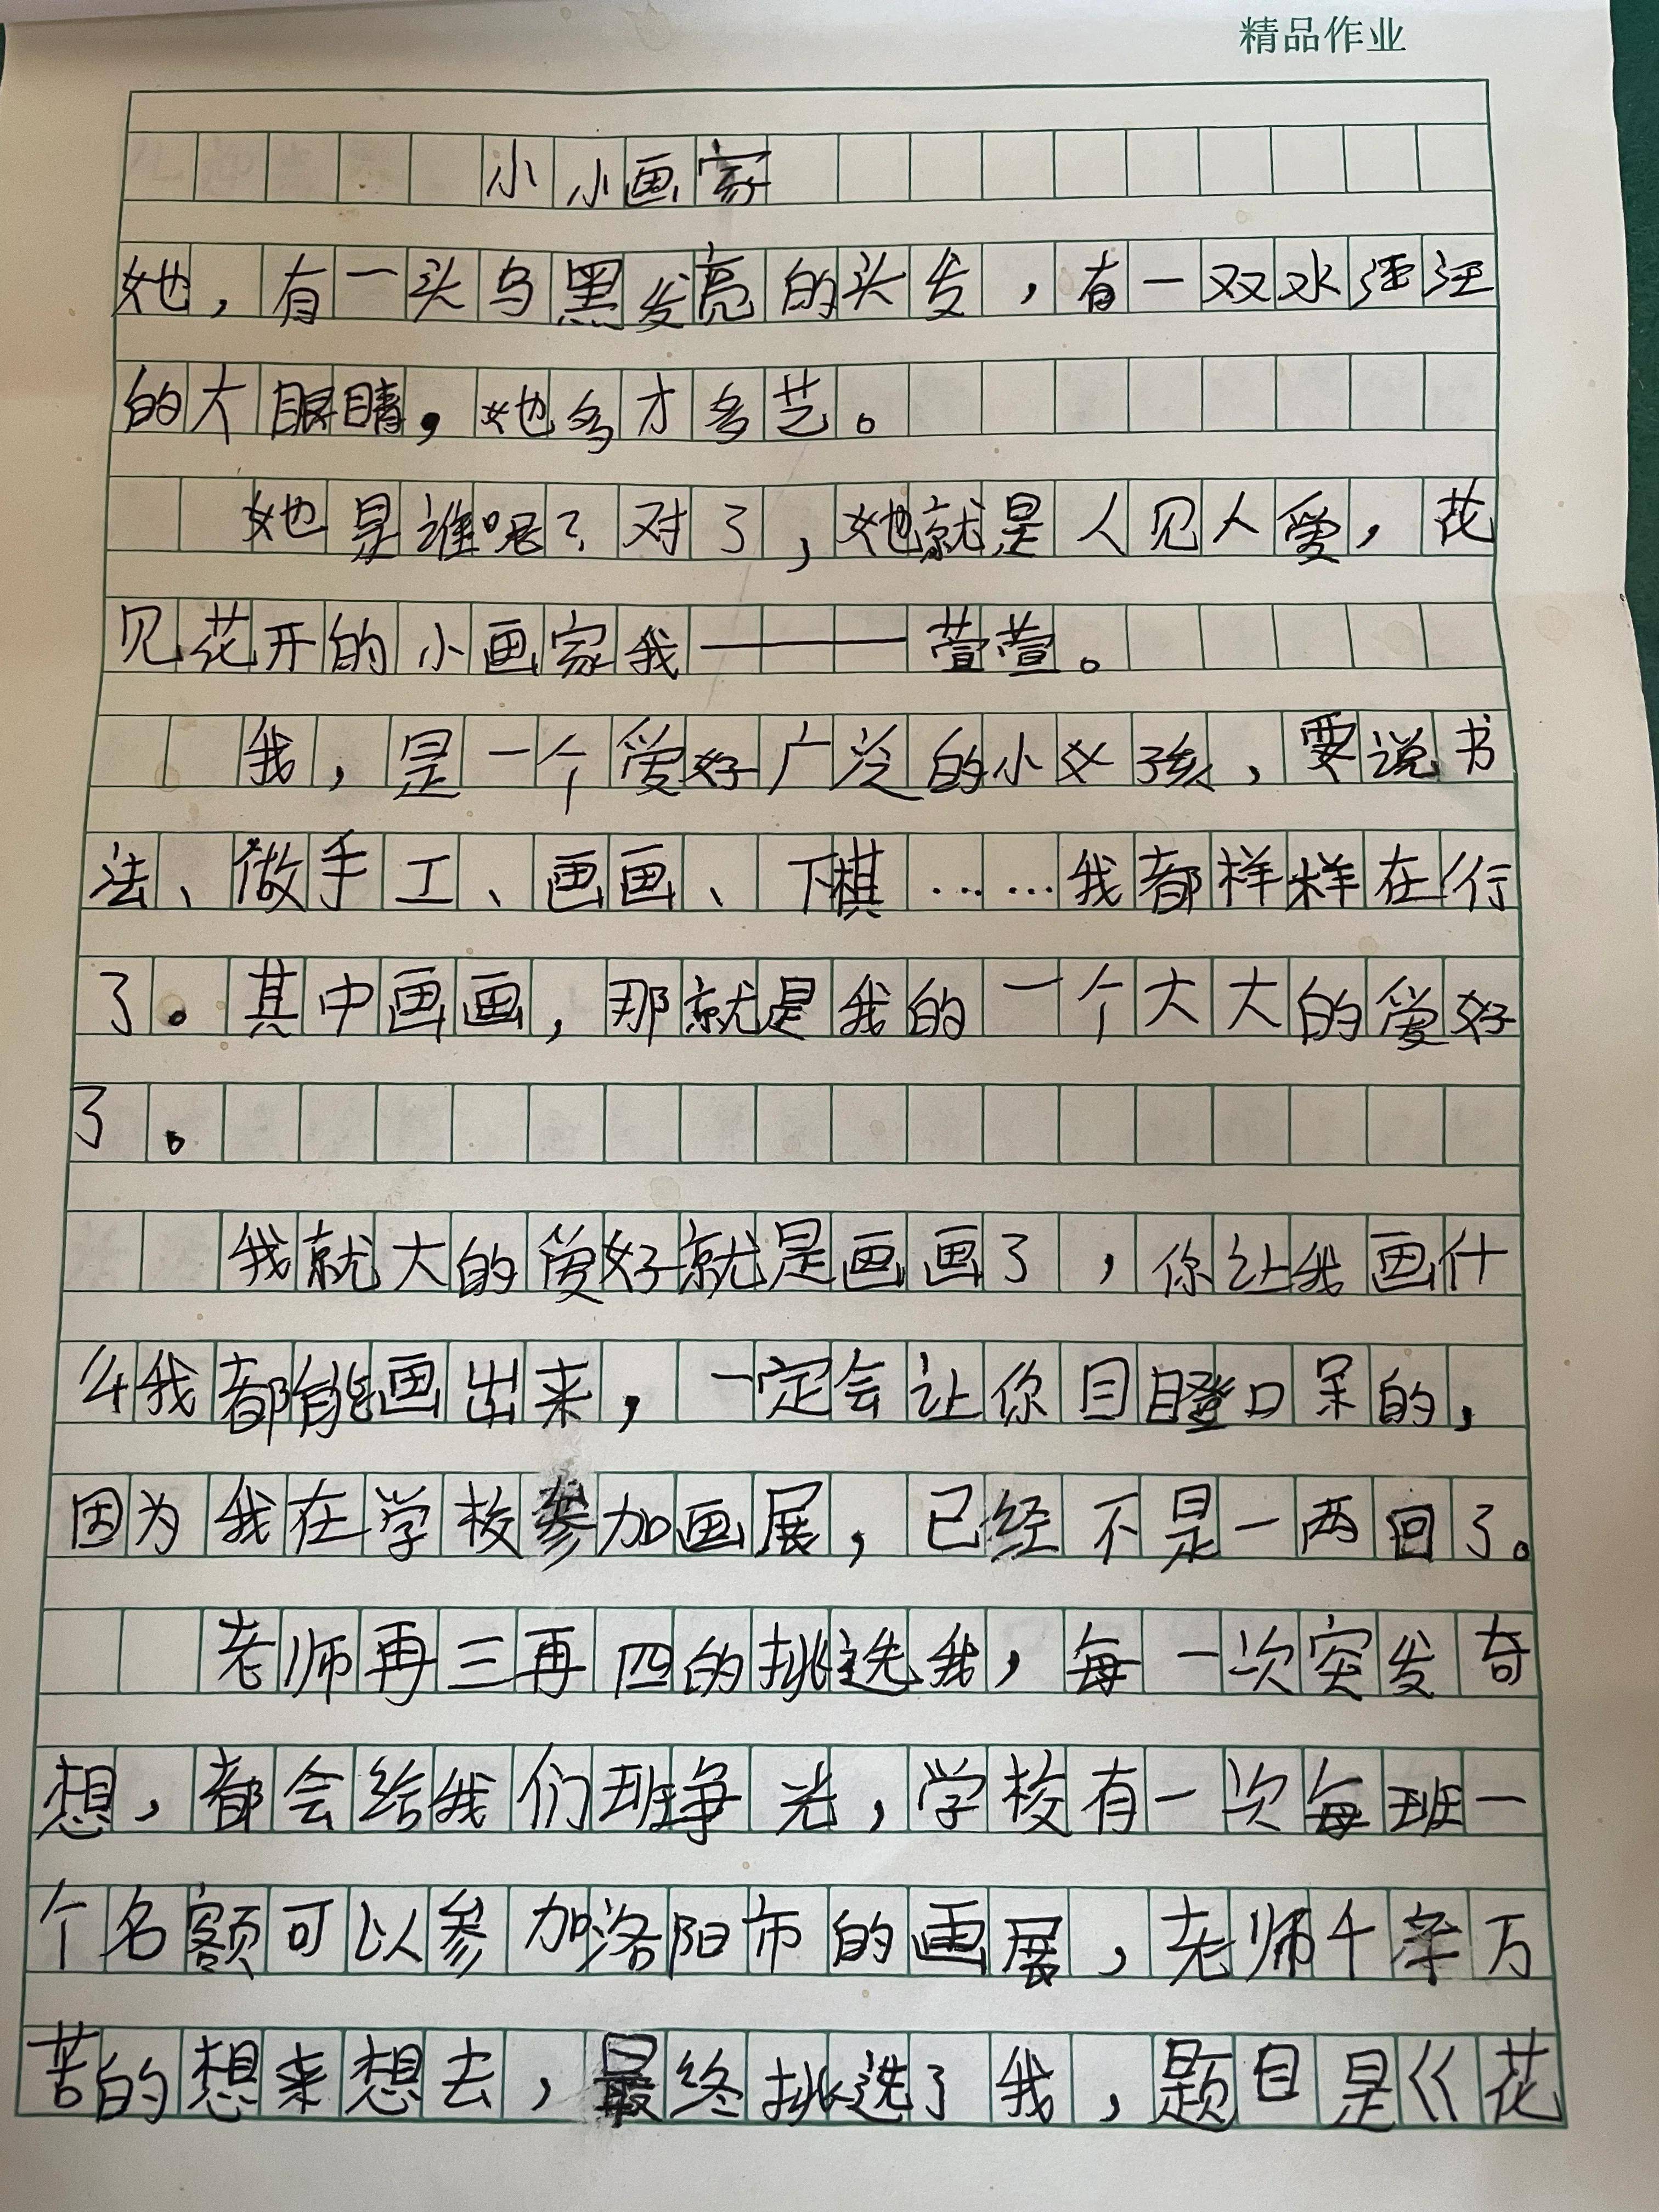 精品作业
小小画家
她，有一头乌黑发亮的头发，有一双水汪汪
的大眼睛，她多才多艺。
她是谁呢？对了，她就是人见人爱，花
见花开的小画家我———萱萱。
我，是一个爱好广泛的小女孩，要说书
法、做手工、画画、下棋……我都样样在行
了。其中画画，那就是我的一个大大的爱好
了。
我就大的爱好就是画画了，你让我画什
么我都能画出来，一定会让你目瞪口呆的，
因为我在学校参加画展，已经不是一两回了。
老师再三再四的挑选我，每一次突发奇
想，都会给我们班争光，学校有一次每班一
个名额可以参加洛阳市的画展，老师千辛万
苦的想来想去，最终挑选了我，题目是《花